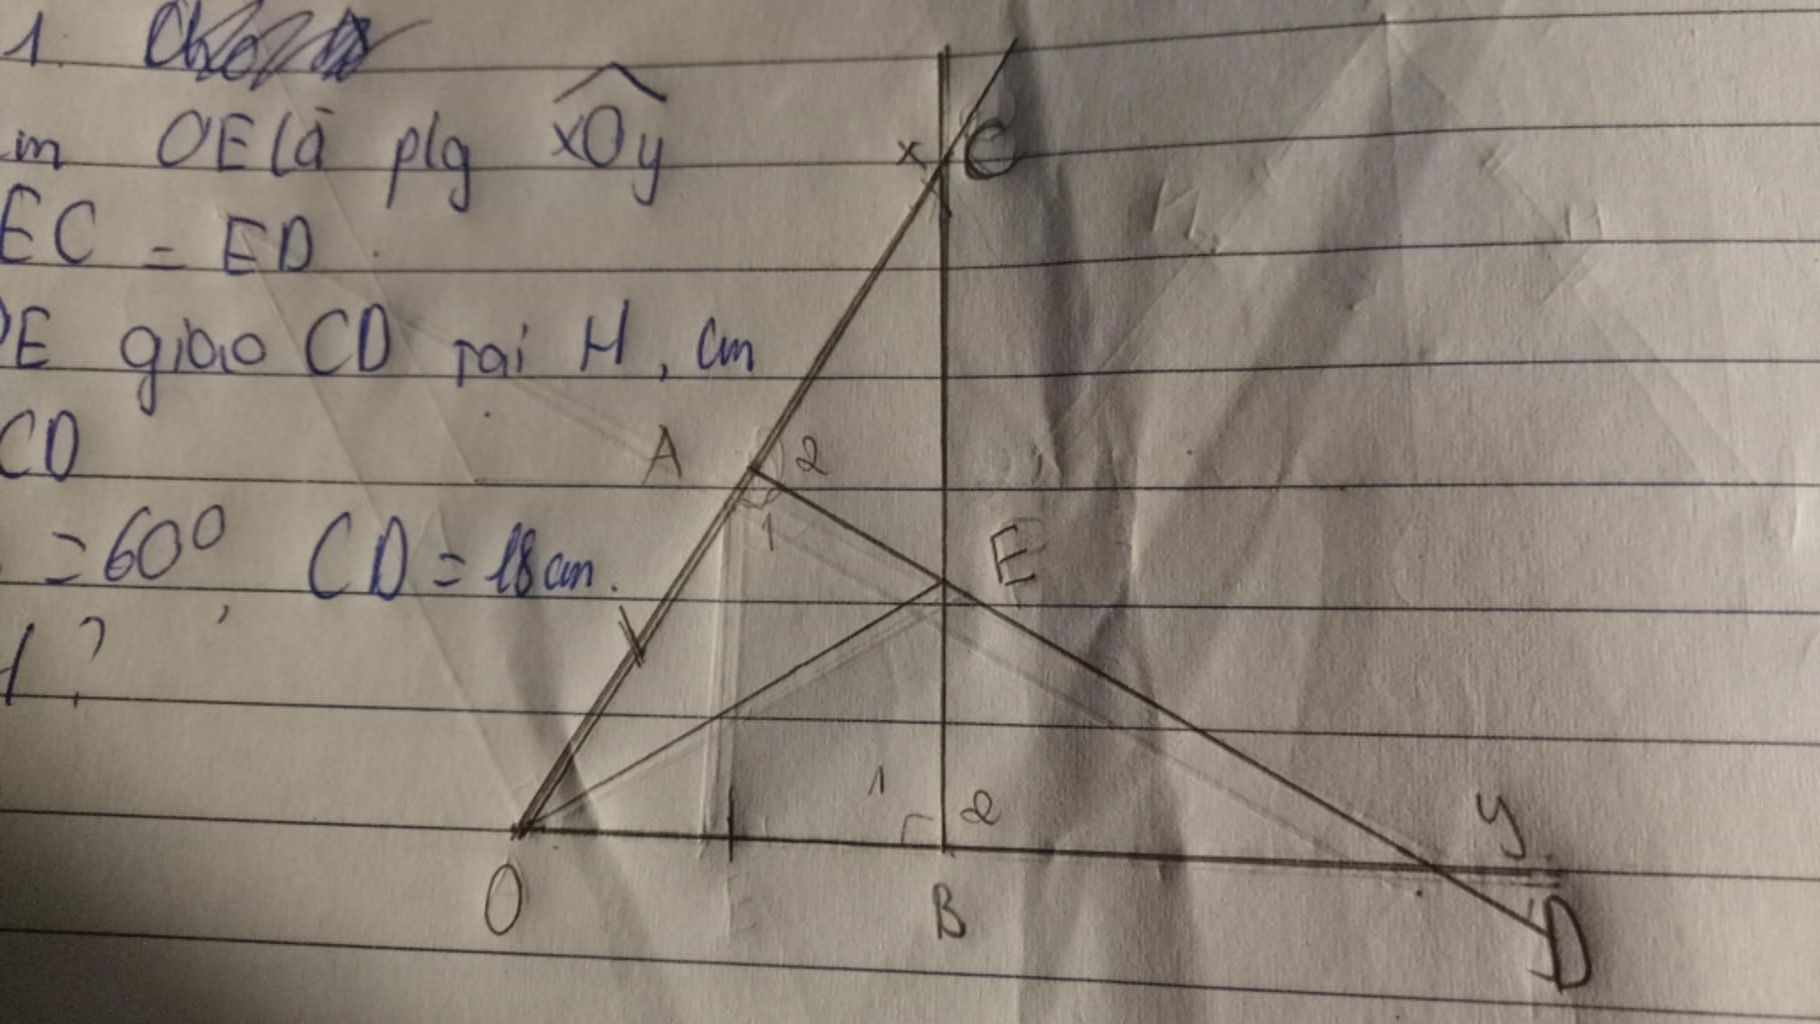 1.
cm OE là plg xOy
EC = ED
OE giao CD tại H, cm
CD
= 60⁰ CD = 18cm.
H?
x C
A 2
1
E
1 2
y
O B D